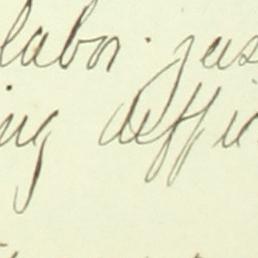 labor. jus
ing diffic